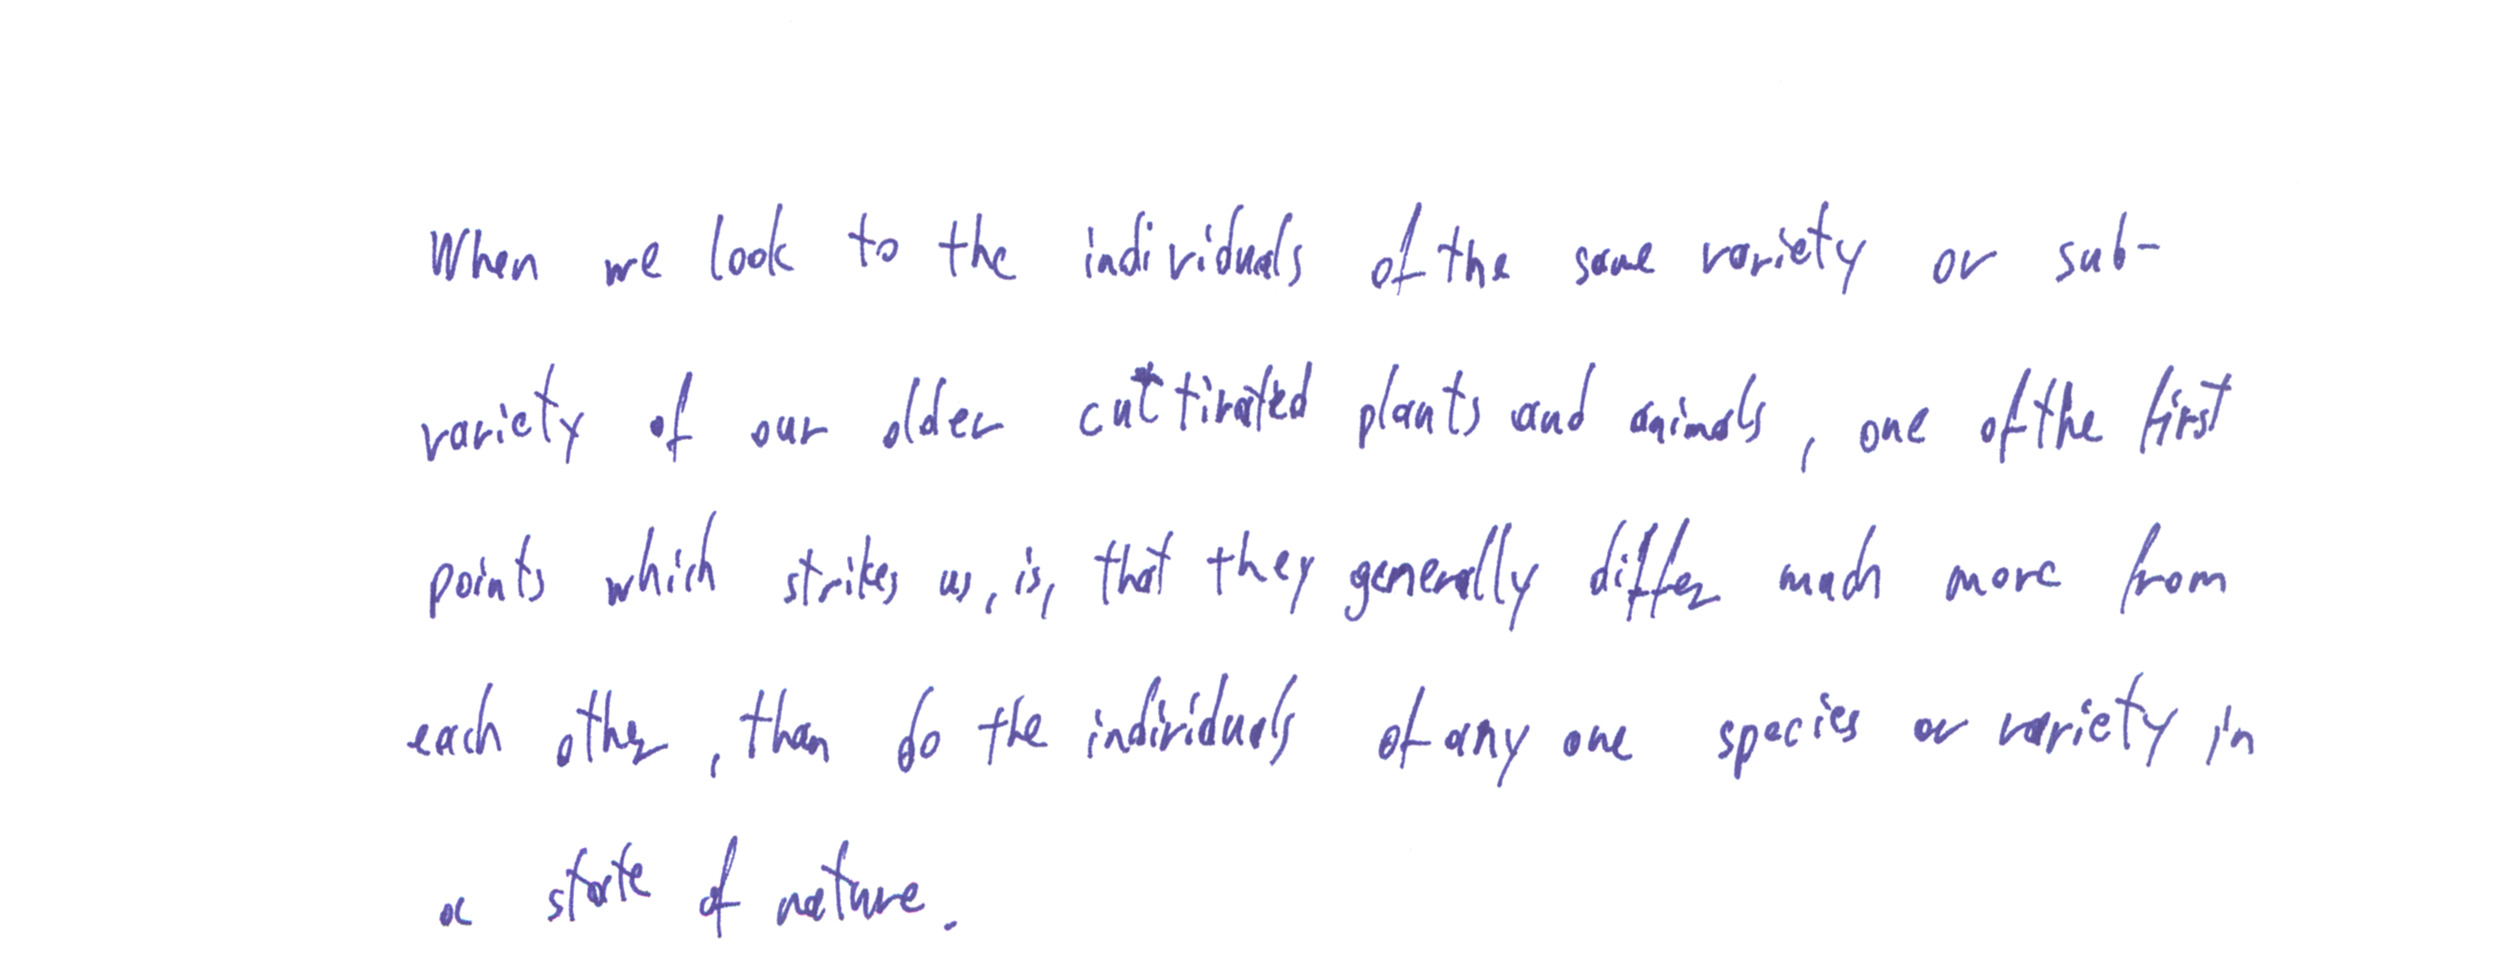 When we look to the individuals of the same variety or sub-
variety of our older cultivated plants and animals, one of the first
points which strikes us, is, that they generally differ much more from
each other, than do the individuals of any one species or variety in
a state of nature.